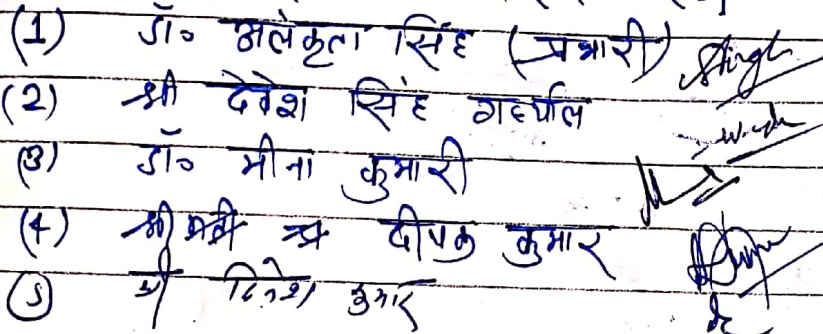 (1) डॉ० अलंकृता सिंह (प्रभारी)
(2) श्री देवेश सिंह गर्ब्याल
(3) डॉ० मीना कुमारी
(4) श्री दीपक कुमार
(5) श्री दिनेश कुमार